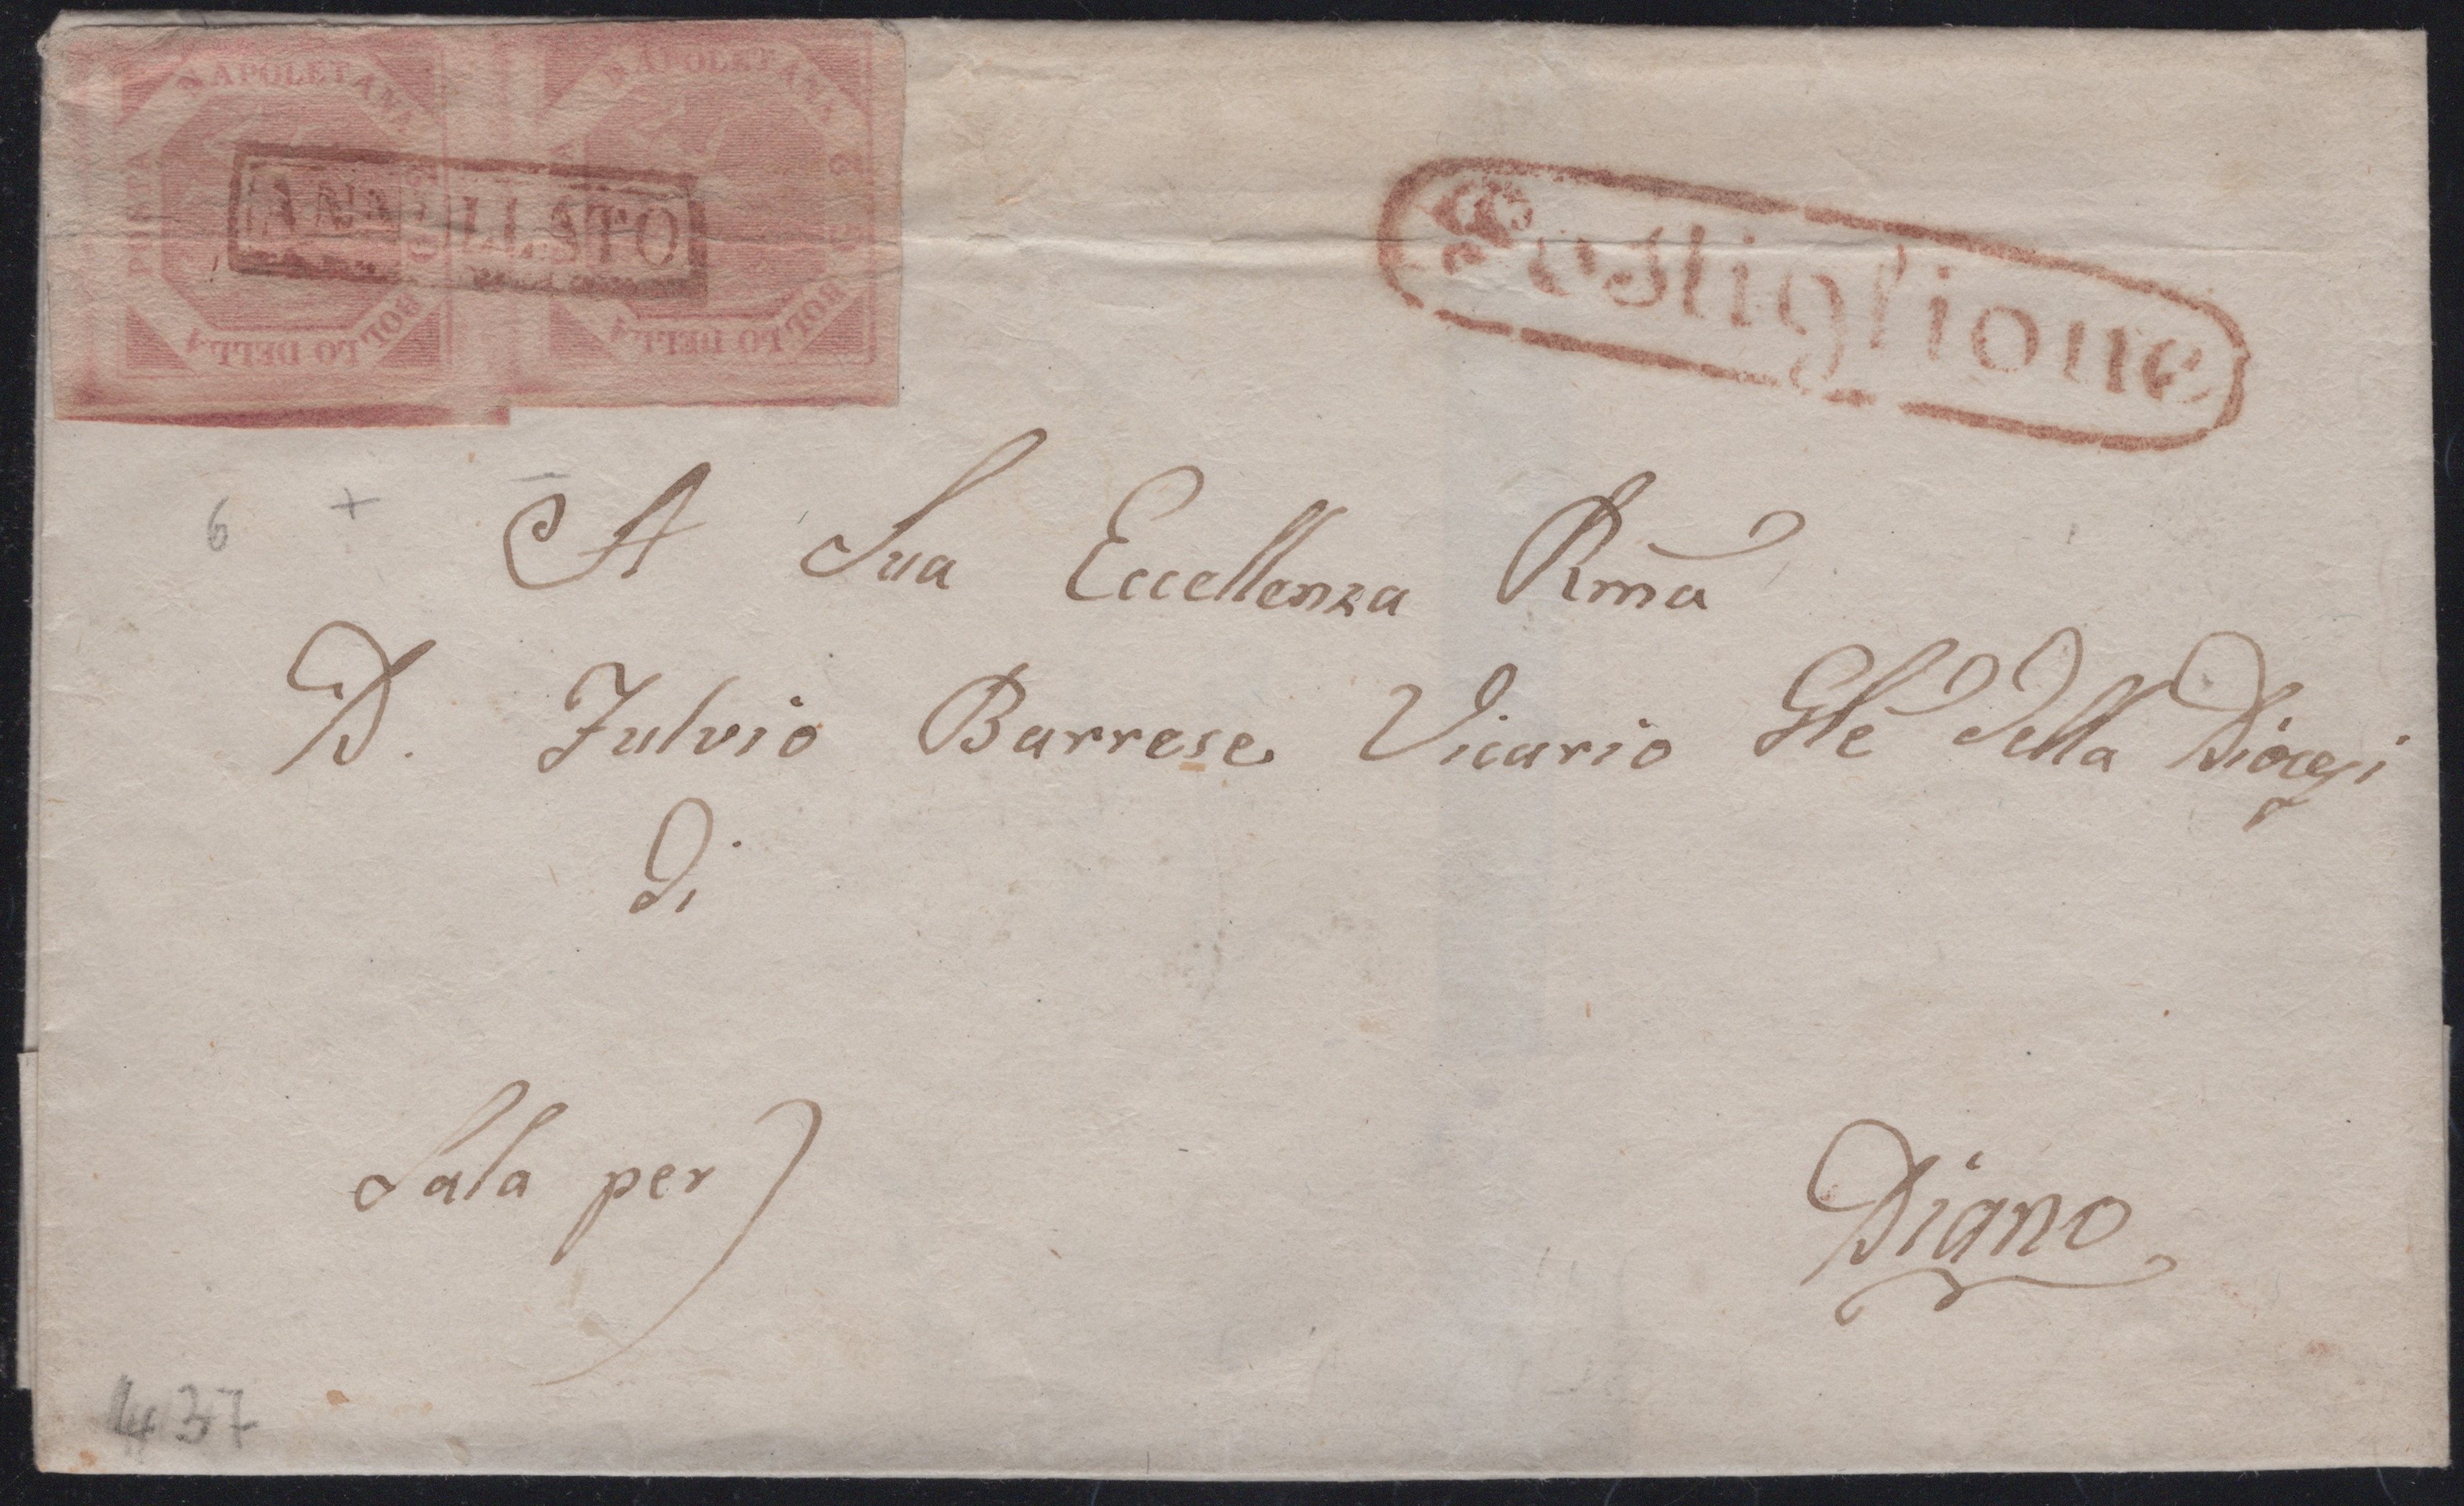 BOLLO DELLA POSTA NAPOLETANA G. 2
BOLLO DELLA POSTA NAPOLETANA G. 2
ANNULLATO
Postiglione
A Sua Eccellenza Rma
D. Fulvio Barrese Vicario Gle della Diocesi
di
Sala per
Diano
6 +
437